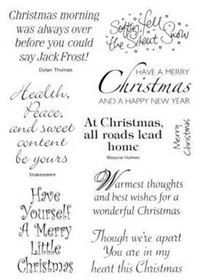 Christmas morning
was always over
before you could
say Jack Frost!
Dylan Thomas
Softly fell
the Silent Snow
HAVE A MERRY
Christmas
AND A HAPPY NEW YEAR
Health,
Peace,
and sweet
content
be yours
Shakespeare
At Christmas,
all roads lead
home
Marjorie Holmes
Merry
Christmas
Have
Yourself
A Merry
Little
Christmas
Warmest thoughts
and best wishes for a
wonderful Christmas
Though we're apart
You are in my
heart this Christmas